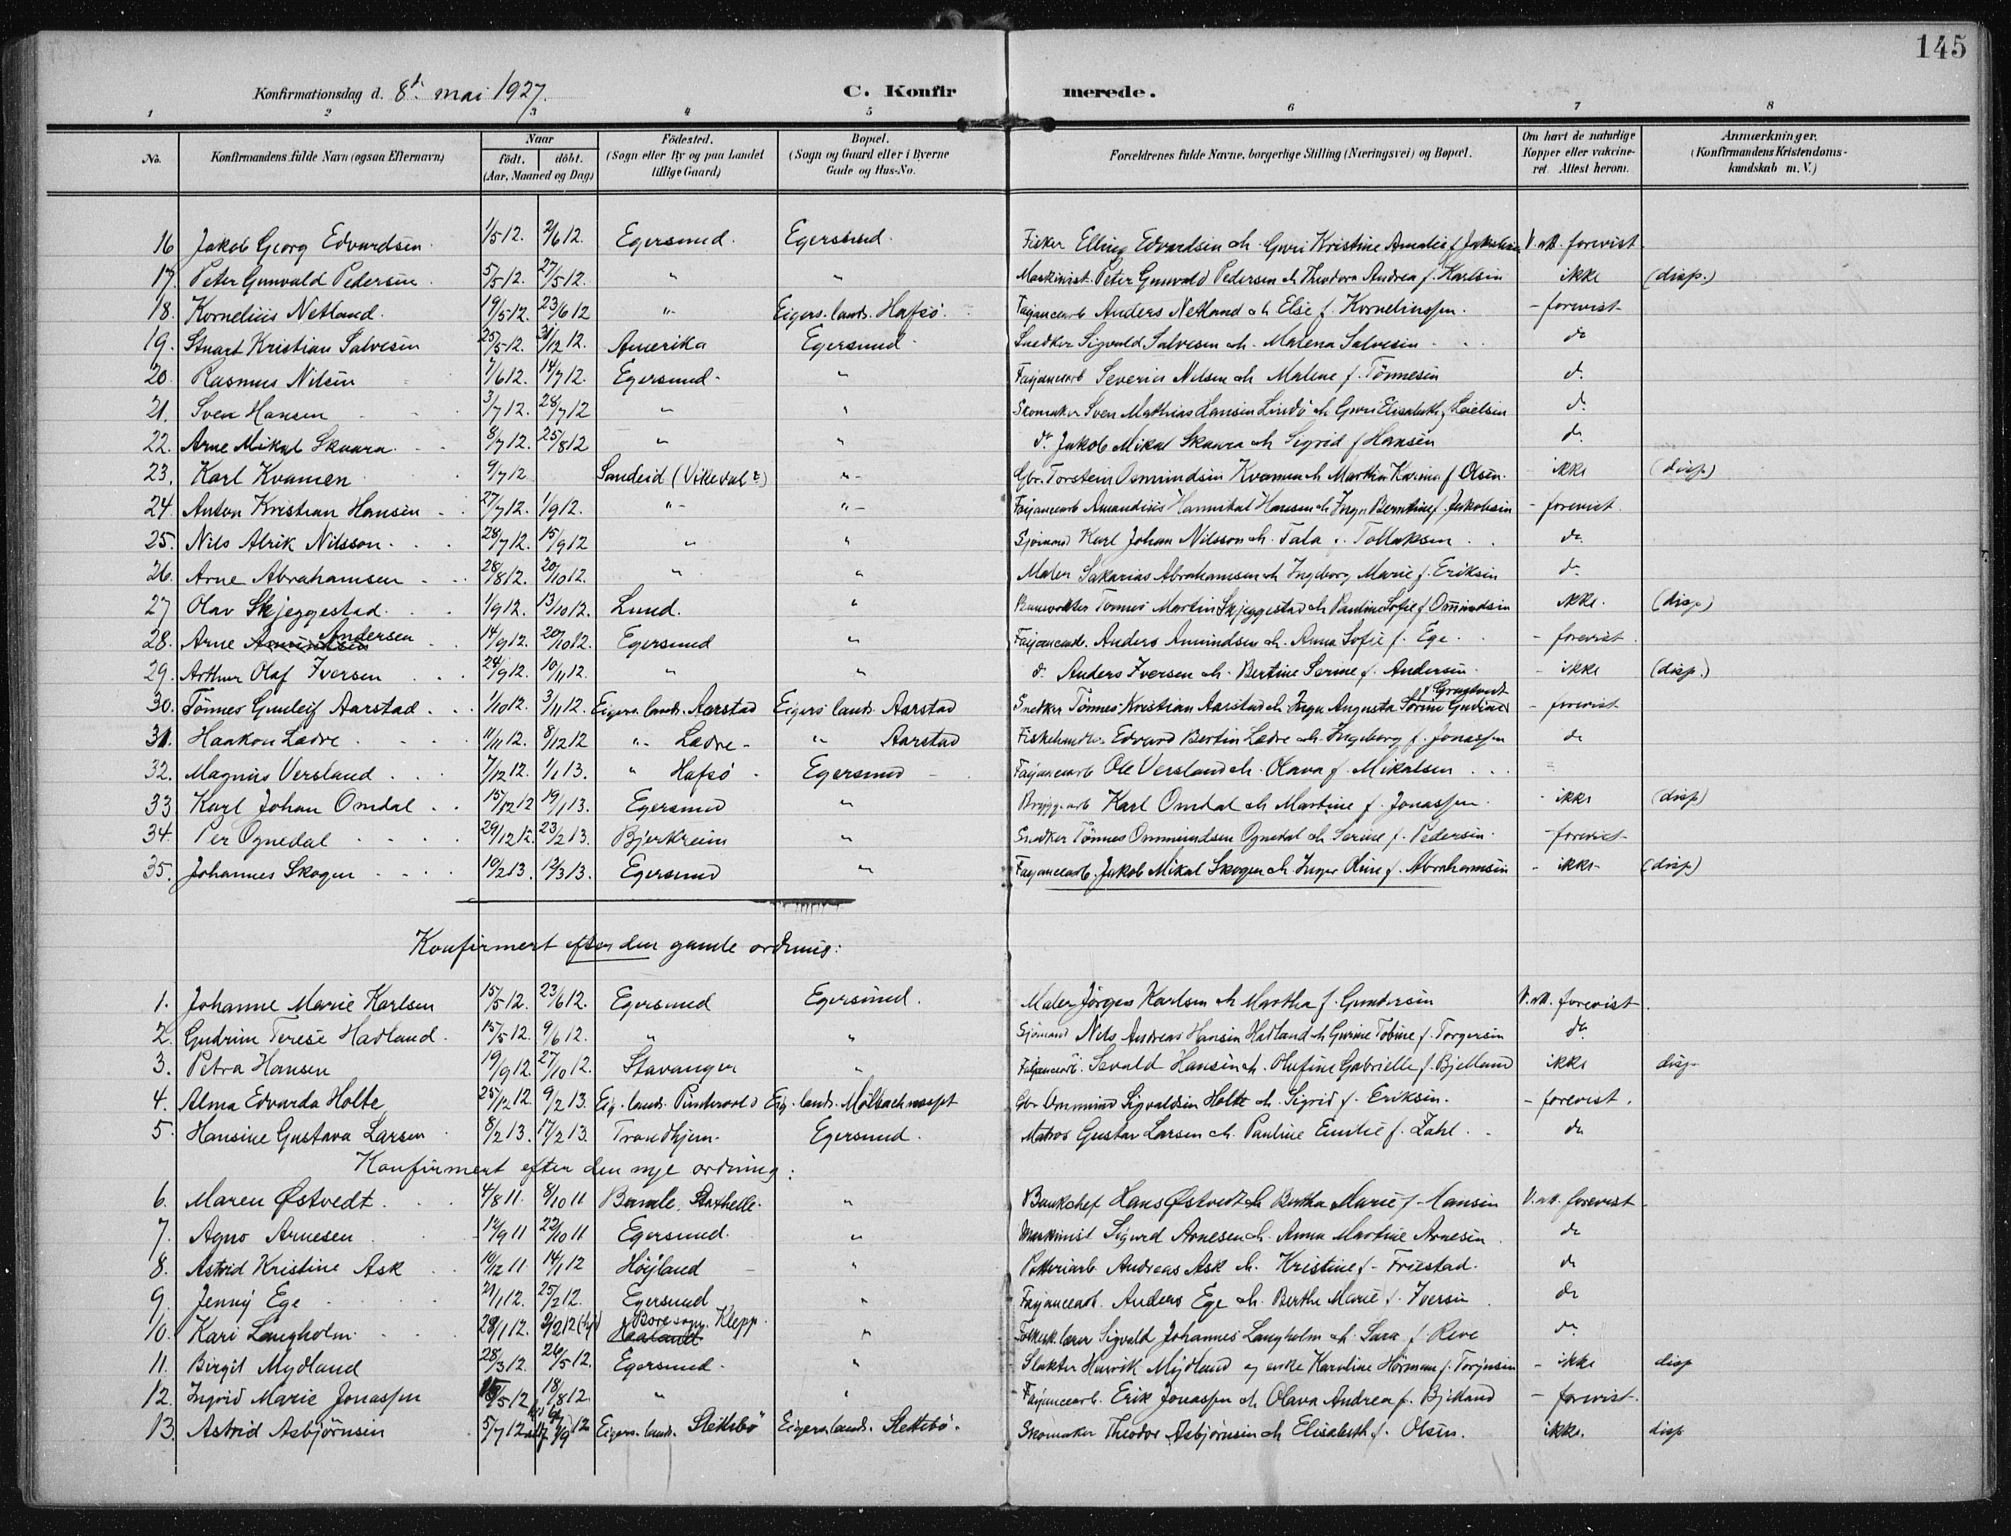 145
Konfirmationsdag d. 8de mai 1927.
C. Konfirmerede.
1 2 3 4 5 6 7 8
No. Konfirmandens fulde Navn (ogsaa Efternavn) Naar født. døbt. (Aar, Maaned og Dag) Fødested. (Sogn eller By og paa Landet tillige Gaard) Bopæl. (Sogn og Gaard eller i Byerne Gade og Hus-No. Forældrenes fulde Navne, borgerlige Stilling (Næringsvei) og Bopæl. Om havt de naturlige Kopper eller vakcineret. Attest herom. Anmærkninger. (Konfirmandens Kristendomskundskab m. V.)
16 Jakob Georg Edvardsen 1/5 12. 2/6 12. Egersund. Egersund. Fisker Elling Edvardsen & h. Guri Kristine Amalie f. V. att. forevist
17. Peter Gunvald Pedersen 5/5 12. 27/5 12. " " Maskinist Peter Gunvald Pedersen & h. Theodora Andrea f. Karlsen ikke (disp.)
18. Kornelius Netland. 19/5 12. 23/6 12 " Eigers. lands. Hafsö. Fajancearb Anders Netland & h. Else f. Korneliussen. - forevist
19. Stuart Kristian Salvesen 25/5 12. 31/12 12. Amerika Egersund Snedker Sigvald Salvesen & h. Malena Salvesen do
20. Rasmus Nilsen 7/6 12. 14/7 12. Egersund. " Fajancearb Severin Nilsen & h. Malene f. Tönnesen do
21. Sven Hansen 3/7 12. 28/7 12 " " Skomaker Sven Mathias Hansen Lindö & h. Guri Elisabeth f. do
22. Arne Mikal Skaara 8/7 12. 25/8 12 " " do Jakob Mikal Skaara & h. Sigrid f. Hansen do
23. Karl Kvamen 9/7 12 Sandeid (Vikedal) " Gbr. Torstein Osmundsen Kvamen & h. Martha Karina f. Olsen. ikke (disp)
24. Anton Kristian Hansen 27/7 12. 1/9 12. " " Fajancearb Amandius Hannibal Hansen & h. Inga Berntine f. Jakobsen - forevist.
25. Nils Alrik Nilsson. 28/7 12. 15/9 12 " " Sjömand Karl Johan Nilsson & h. Tala f. Tollaksen do
26. Arne Abrahamsen 28/8 12. 20/10 12. " " Maler Sakarias Abrahamsen & h. Ingeborg Marie f. Eriksen do
27 Olav Skjeggestad. 1/9 12. 13/10 12. Lund. " Banevokter Tönnes Martin Skjeggestad & h. Pauline Sofie f. Omundsen ikke. (disp)
28. Arne Amundsen Andersen 14/9 12. 20/10 12. Egersund " Fajancearb. Anders Amundsen & h. Anna Sofie f. Ege. - forevist
29. Arthur Olaf Iversen 24/9 12. 10/11 12. " " do Anders Iversen & h. Bertine Serine f. Andersen - ikke (disp.)
30. Tönnes Gunleif Aarstad 1/10 12. 3/11 12. Eigers. lands. Aarstad Eigers. lands. Aarstad Snedker Tönnes Kristian Aarstad & h. Inga Augusta Sorine - forevist
31. Haakon Ladre 11/11 12. 8/12 12 " Ladre " Aarstad Fiskehandler Edvard Bertin Ladre & h. Ingeborg f. Jonassen do
32. Magnus Versland 7/12 12. 1/1 13. " Hafsö Egersund Fajancearb Ole Versland & h. Olava f. Mikalsen
33 Karl Johan Omdal 15/12 12 19/1 13. Egersund " Bryggearb Karl Omdal & h. Martine f. Jonassen. - ikke (disp)
34. Per Ognedal 29/12 12. 23/2 13. Bjerkreim " Snedker Tönnes Ommundsen Ognedal & h. Serine f. Pedersen. - forevist
35. Johannes Skogen 10/2 13. 12/3 13. Egersund " Fajancearb. Jakob Mikal Skogen & h. Inger Oline f. Abrahamsen - ikke (disp)
Konfirmert efter den gamle ordning:
1. Johanne Marie Karlsen 15/5 12. 23/6 12. Egersund Egersund. Maler Jörgen Karlsen & h. Martha f. Gundersen V. att. forevist
2. Gudrun Terese Hadland. 15/5 12. 9/6 12. " " Sjömand Nils Andreas Hansen Hadland & h. Gurine Tobine f. Torgersen do
3. Petra Hansen 19/9 12. 27/10 12. Stavanger " Fajancearb. Sevald Hansen & h. Olufine Gabrielle f. Bjelland ikke disp
4. Alma Edvarda Holte 25/12 12 9/2 13. Eig. lands. Eig. lands. Gbr Ommund Sigvaldsen Holte & h. Sigrid f. Eriksen. - forevist.
5. Hansine Gustava Larsen 8/2 13. 17/2 13. Trondhjem. Egersund. Matros Gustav Larsen & h. Pauline Emilie f. Zahl. do
Konfirmert efter den nye ordning:
6. Maren Østvedt. 4/8 11. 8/10 11 Bamle, Stathelle. " Bankchef Hans Østvedt & h. Bertha Marie f. Hansen V. att. forevist
7. Agno Arnesen 12/9 11 22/10 11 Egersund. " Maskinist Sigurd Arnesen & h. Anna Martine Arnesen do
8. Astrid Kristine Ask 10/12 11 14/1 12 Höjland " Potteriarb Andreas Ask & h. Kristine f. Friestad. do
9. Jenny Ege 21/1 12. 25/2 12. Egersund " Fajancearb. Anders Ege & h. Berthe Marie f. Iversen do
10. Kari Langholm. 28/1 12. 2/2 12 Bore sogn, Klepp. Haaland " Folkesk. lærer Sigvald Johannes Langholm & h. Sara f. Reve do
11. Birgit Mydland 28/3 12. 26/5 12. Egersund. " Slakter Henrik Mydland og enke Karoline Hörmann f. Torjusen - ikke disp
12. Ingrid Marie Jonassen /5 12 18/8 12. " " Fajancearb. Erik Jonassen & h. Olava Andrea f. Bjelland - forevist.
13. Astrid Asbjörnsen 5/7 12 Eigers. lands. Slettebö Eigers. lands. Slettebö. Skomaker Theodor Asbjörnsen & h. Elisabeth f. Olsen. ikke. disp